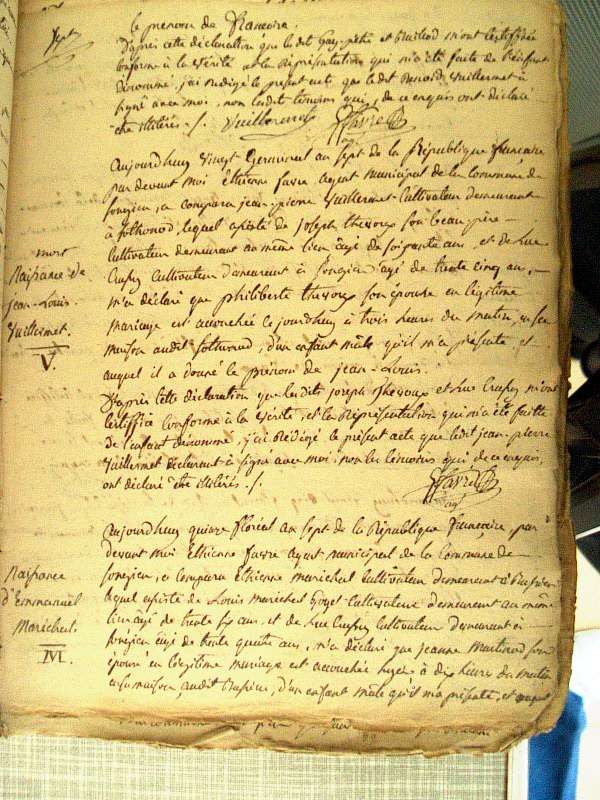 le prenom de francoise.
D'après cette déclaration que lesdit Guy-pethe et Builland m'ont Certiffiée
Conforme à la Vérité et la Représentation qui m'a été faite de l'Enfant
dénommé, j'ai rédigé le présent acte que ledit Benoid Vuillermet à
signé avec moi, non lesdit témoins qui de ce enquis ont déclaré
être illitérés ./. Vuillermet favre
ag.
Aujourdhuy vingt Germinal an sept de la République francaise
par devant moi Éthienne favre agent municipal de la Commune de
Songieu, a Comparu jean-pierre Vuillermet Cultivateur demeurant
à sothonod, lequel assisté de Joseph thevoux son beau-père
Cultivateur demeurant au même lieu agé de soixante ans, et de Luc
Cultivateur demeurant à Songieu agé de trente cinq ans,
m'a déclaré que philiberte thevoux son épouse en légitime
mariage est accouchée Ce jourdhuy à trois heures du matin, en sa
maison audit Sothonod, d'un enfant mâle qu'il m'a présenté et
auquel il a donné le prénom de jean-Louis.
D'après Cette déclaration que lesdits joseph thevoux et Luc m'ont
Certiffiée Conforme à la Vérité, et la Représentation qui m'a été faitte
de l'enfant dénommé, j'ai Rédigé le présent acte que ledit jean-pierre
Vuillermet déclarant à signé avec moi non les témoins qui de ce enquis,
ont déclaré être illitérés ./. favre
ag.
mort
Naissance de
jean-Louis
Vuillermet.
V.
Aujourdhuy quinze floréal an sept de la République francaise, par
devant moi Ethienne favre agent municipal de la Commune de
Songieu, a Comparu Ethienne marechal Cultivateur demeurant à
lequel assisté de Louis marechal Cultivateur demeurant au même
lieu agé de trente six ans, et de Luc Cultivateur demeurant à
Songieu agé de trente quatre ans, m'a déclaré que jeanne Martinod son
épouse en légitime mariage est accouchée hyer à dix heures du matin
en sa maison, audit d'un enfant mâle qu'il m'a présenté, et auquel
Naissance
d'Emmanuel
Marechal.